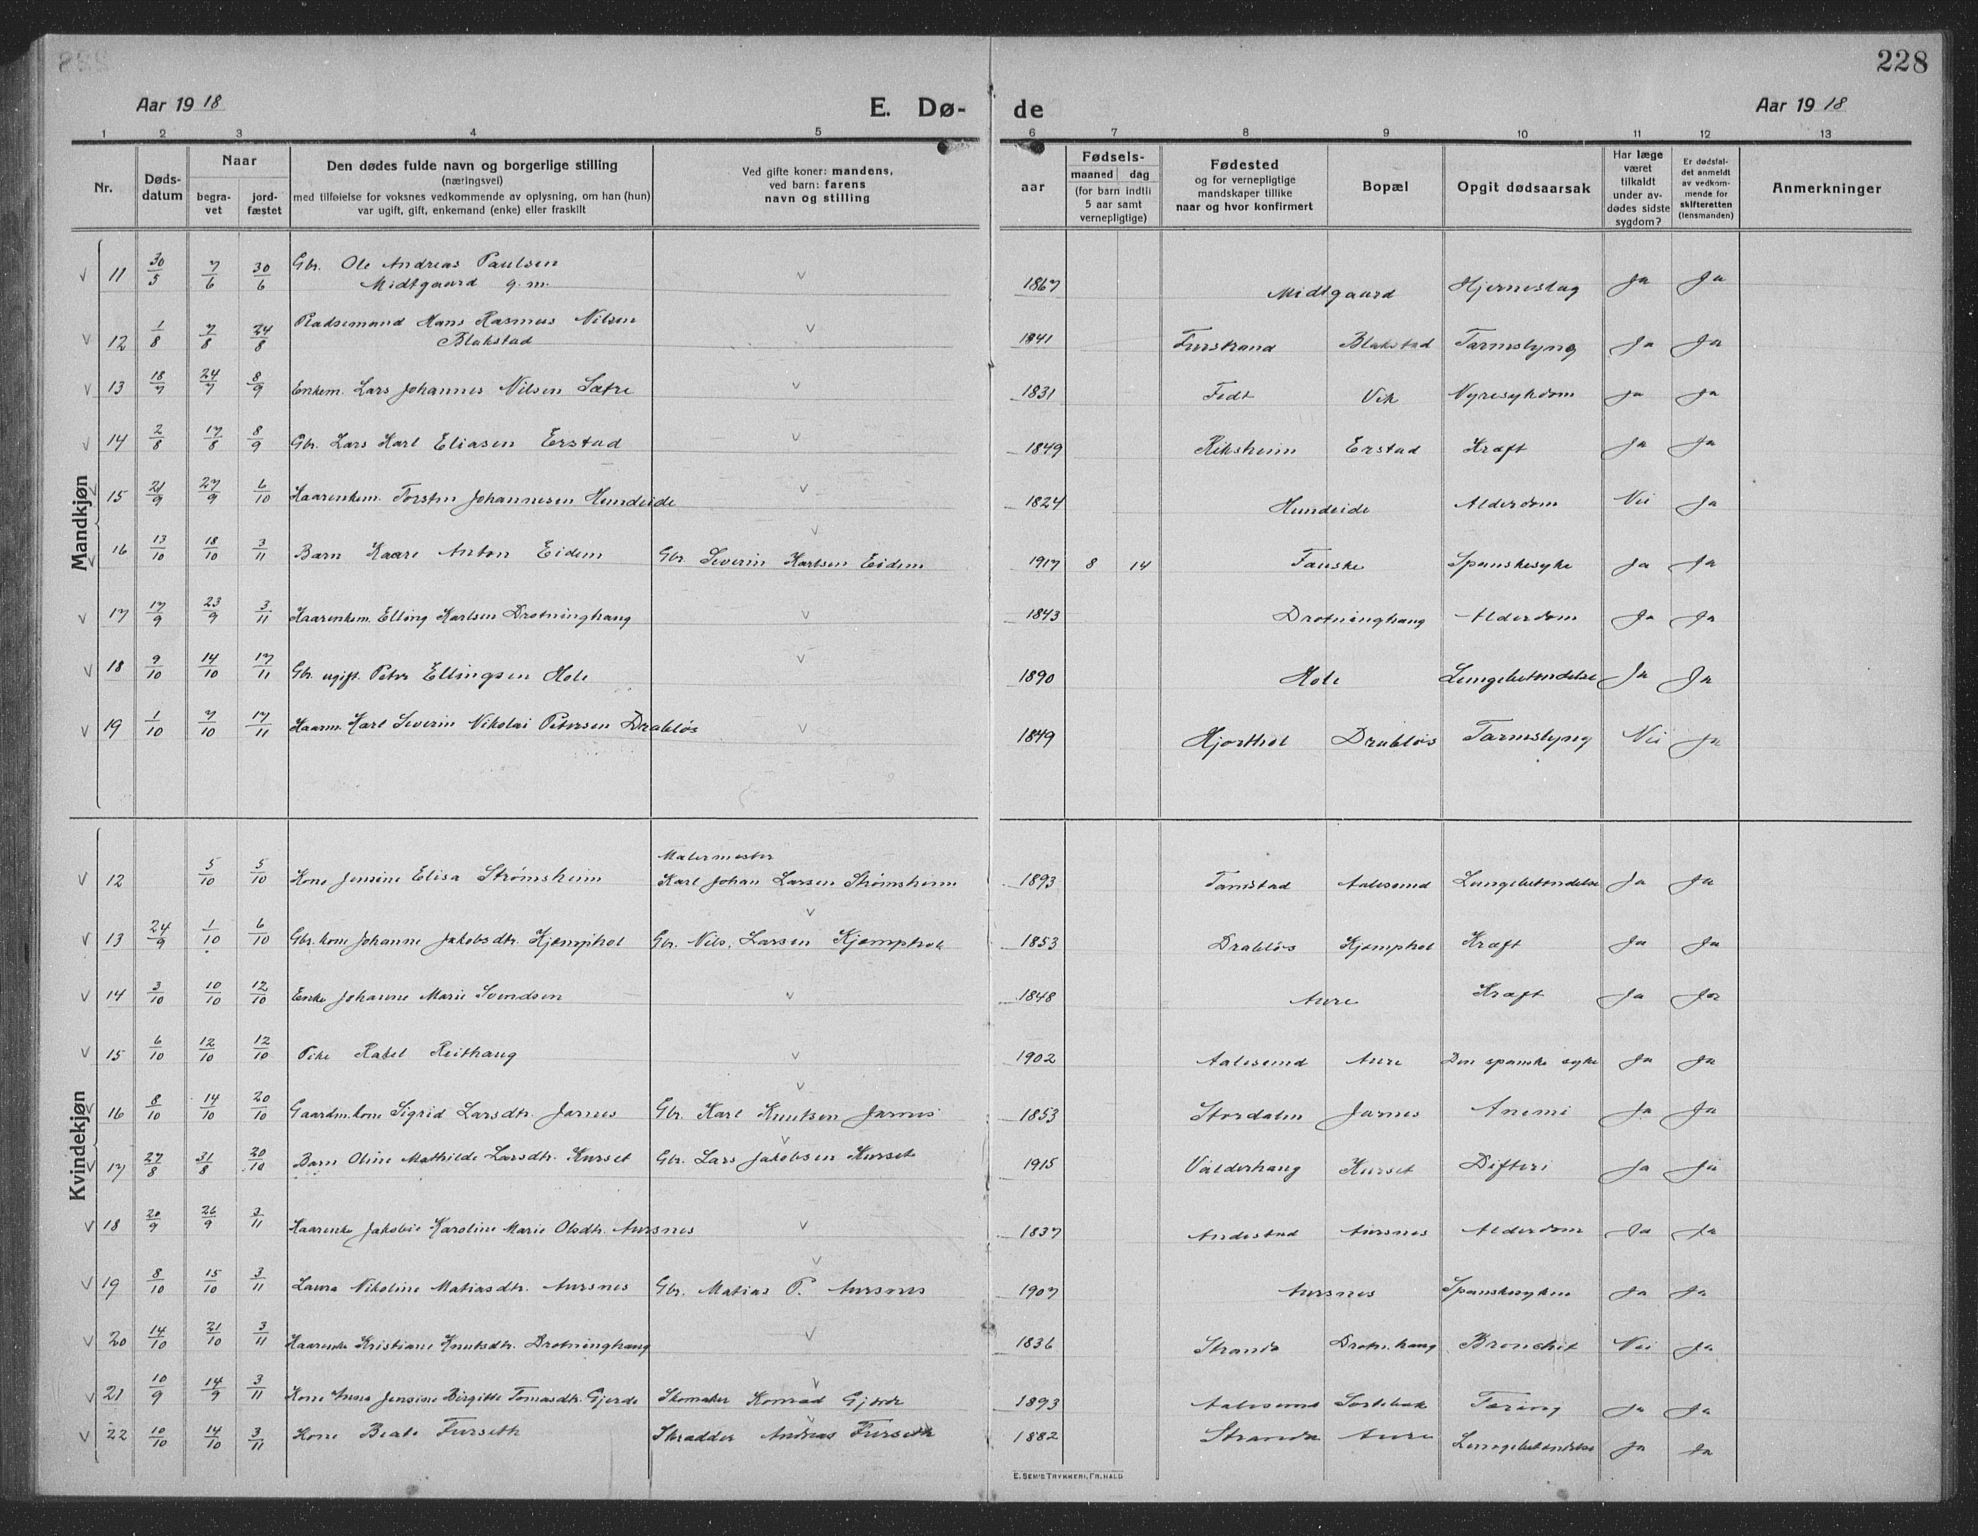 228
Aar 1918
E. Dø-
de
Aar 1918
1 2 3 4 5 6 7 8 9 10 11 12 13
Nr.
Døds-
datum
Naar
begra-
vet
jord-
fæstet
Den dødes fulde navn og borgerlige stilling
(næringsvei)
med tilføielse for voksnes vedkommende av oplysning, om han (hun)
var ugift, gift, enkemand (enke) eller fraskilt
Ved gifte koner: mandens,
ved barn: farens
navn og stilling
aar
Fødsels-
maaned dag
(for barn indtil
5 aar samt
vernepligtige)
Fødested
og for vernepligtige
mandskaper tillike
naar og hvor konfirmert
Bopæl
Opgit dødsaarsak
Har læge
været
tilkaldt
under av-
dødes sidste
sygdom?
Er dødsfal-
det anmeldt
av vedkom-
mende for
skifteretten
(lensmanden)
Anmerkninger
Mandkjøn
11 30/5 7/6 30/6 Gbr. Ole Andreas Paulsen
Midtgaard g.m. 1867 Midtgaard Hjerneslag Ja Ja
12 1/8 7/8 24/8 Pladsemand Hans Rasmus Nilsen
Blakstad 1841 Furstrand Blakstad Tarmslyng Ja Ja
13 18/7 24/7 8/9 Enkem. Lars Johannes Nilsen Sætre 1831 Fedt Vik Nyresykdom Ja Ja
14 2/8 17/8 8/9 Gbr. Lars Karl Eliasen Erstad 1849 Riksheim Erstad Kræft Ja Ja
15 21/9 27/9 6/10 Kaarenkem. Torsten Johannesen Hundeide 1824 Hundeide Alderdom Nei Ja
16 13/10 18/10 3/11 Barn Kaare Anton Eidem Gbr. Severin Karlsen Eidem 1917 8 14 Tauske Spanskesyke Ja Ja
17 17/9 23/9 3/11 Kaarenkem. Elling Karlsen Drotninghaug 1843 Drotninghaug Alderdom Ja Ja
18 9/10 14/10 17/11 Gbr. ugift. Peter Ellingsen Hole 1890 Hole Lungebetændelse Ja Ja
19 1/10 7/10 17/11 Kaarm. Karl Severin Nikolai Petersen Drabløs 1849 Hjorthol Drabløs Tarmslyng Nei Ja
Kvindekjøn
12 5/10 5/10 Kone Jensine Elisa Strømsheim Malermester
Karl Johan Larsen Strømsheim 1893 Tamstad Aalesund Lungebetændelse Ja Ja
13 24/9 1/10 6/10 Gbr.kone Johanne Jakobsdtr. Kjæmphol Gbr. Nils Larsen Kjæmphol 1853 Drabløs Kjæmphol Kræft Ja Ja
14 3/10 10/10 12/10 Enke Johanne Marie Svendsen 1848 Aure Kræft Ja Ja
15 6/10 12/10 12/10 Pike Rakel Reithaug 1902 Aalesund Aure Den spanske syke Ja Ja
16 8/10 14/10 20/10 Gaardm.kone Sigrid Larsdtr. Jarnes Gbr. Karl Knutsen Jarnes 1853 Stordalen Jarnes Anemi Ja Ja
17 27/8 31/8 20/10 Barn Oline Mathilde Larsdtr. Kurset Gbr. Lars Jakobsen Kurset 1915 Valderhaug Kurset Difteri Ja Ja
18 20/9 26/9 3/11 Kaarenke Jakobie Karoline Marie Olsdtr. Aursnes 1837 Andestad Aursnes Alderdom Ja Ja
19 8/10 15/10 3/11 Laura Nikoline Matiasdtr. Aursnes Gbr. Matias P. Aursnes 1907 Aursnes Spanskesyken Ja Ja
20 14/10 21/10 3/11 Kaarenke Kristiane Knutsdtr. Drotninghaug 1836 Stranda Drotn.haug Bronchit Nei Ja
21 10/9 14/9 3/11 Kone Anna Jensine Birgitte Tomasdtr. Gjerde Skomaker Konrad Gjerde 1893 Aalesund Sortebak Tæring Ja Ja
22 10/10 14/10 3/11 Kone Beate Furseth Skrædder Andreas Furseth 1882 Stranda Aure Lungebetændelse Ja Ja
E. SEM'S TRYKKERI, FR.HALD